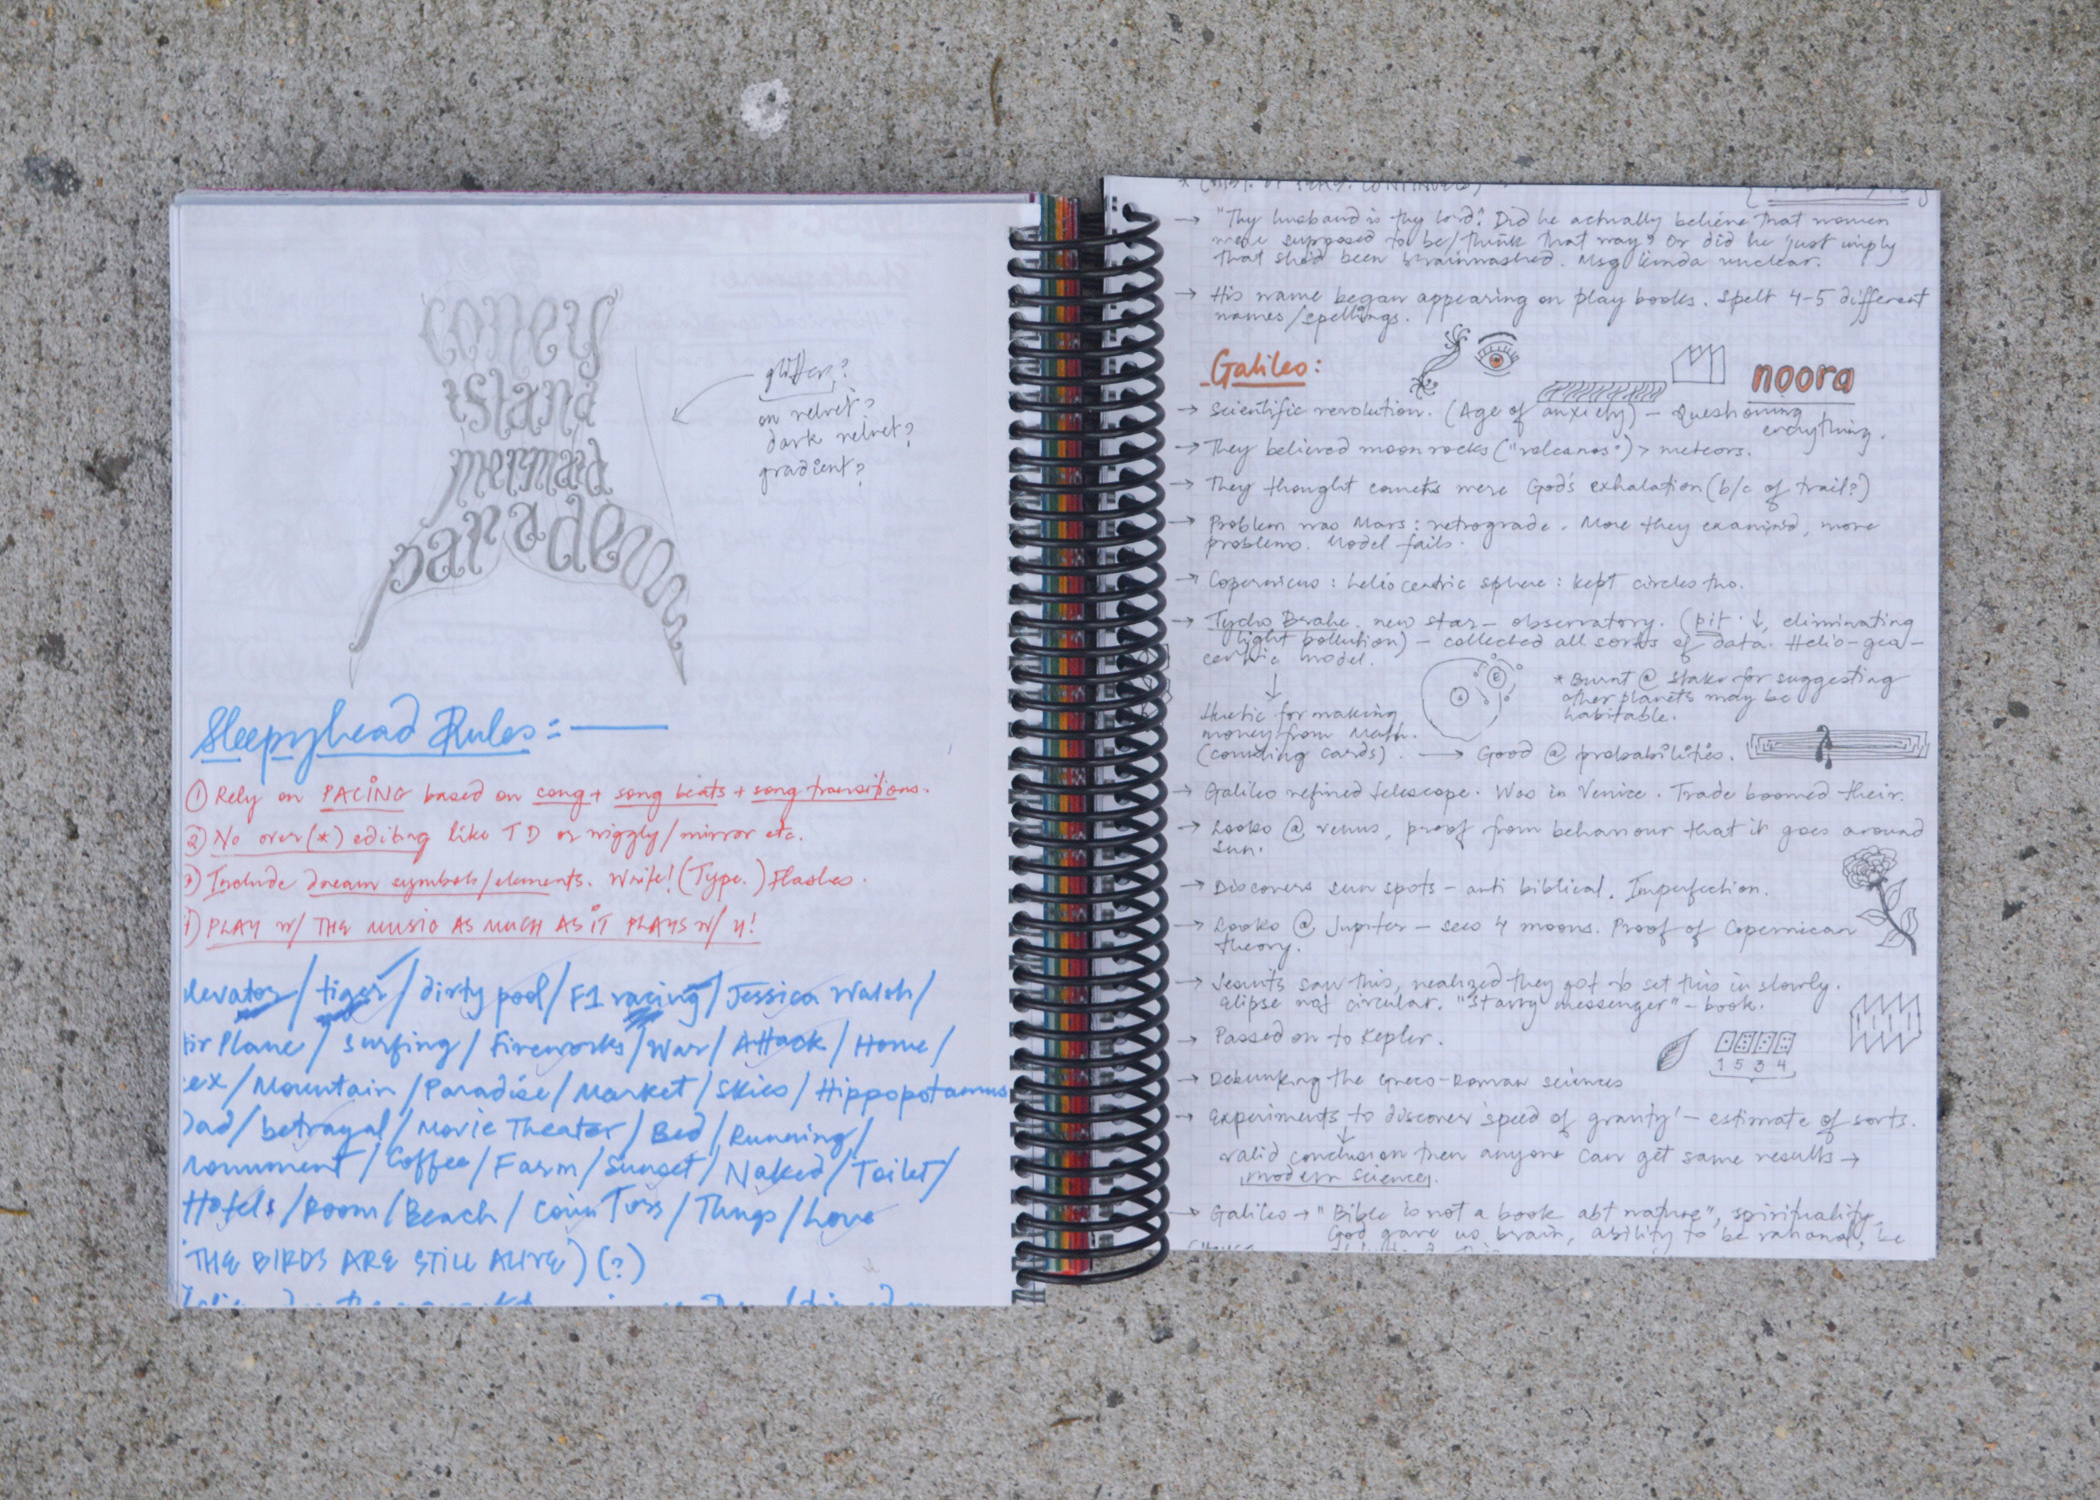 coney
island
mermaid
parade
glitter?
on velvet?
dark velvet?
gradient?
Sleepyhead Rules:
① Rely on PACING based on song + song beats + song transitions.
② No over(*) editing like TD or wiggly/mirror etc.
Include dream symbols/elements. Write! (Type.) Flashes.
PLAY w/ THE MUSIC AS MUCH AS IT PLAYS w/ U!
levator / tiger / dirty pool / F1 racing / Jessica Walsh /
ir Plane / Surfing / Fireworks / War / Attack / Home /
ex / Mountain / Paradise / Market / Skies / Hippopotamus
Dad / betrayal / Movie Theater / Bed / Running /
monument / Coffee / Farm / Sunset / Naked / Toilet /
Hotels / Room / Beach / Coin Toss / Things / Love
THE BIRDS ARE STILL ALIVE) (?)
→ "Thy husband is thy lord". Did he actually believe that women
were supposed to be/think that way? Or did he just imply
that she'd been brainwashed. Msg kinda unclear.
→ His name began appearing on play books. Spelt 4-5 different
names/spellings.
Galileo:
noora
→ Scientific revolution. (Age of anxiety) - Questioning
everything.
→ They believed moon rocks ("volcanos") > meteors.
→ They thought comets were God's exhalation (b/c of trail?)
→ Problem was Mars: retrograde. More they examined, more
problems. Model fails.
→ Copernicus: heliocentric sphere: kept circles tho.
→ Tycho Brahe. new star - observatory. (pit ↓, eliminating
light pollution) - collected all sorts of data. Helio-geo-
centric model.
↓
* Burnt @ stake for suggesting
other planets may be
habitable.
Heretic for making
money from math.
(counting cards). → Good @ probabilities.
→ Galileo refined telescope. Was in Venice. Trade boomed their.
→ Looks @ venus, proof from behaviour that it goes around
sun.
→ Discovers sun spots - anti biblical. Imperfection.
→ Looks @ Jupiter - sees 4 moons. Proof of Copernican
theory.
→ Jesuits saw this, realized they got to set this in slowly.
elipse not circular. "Starry messenger" - book.
→ Passed on to Kepler.
1 5 3 4
→ Debunking the Greco-Roman sciences
→ Experiments to discover 'speed of gravity' - estimate of sorts.
↓
valid conclusion then anyone can get same results →
modern science.
→ Galileo → "Bible is not a book abt nature", spirituality.
God gave us brain, ability to be rational, be